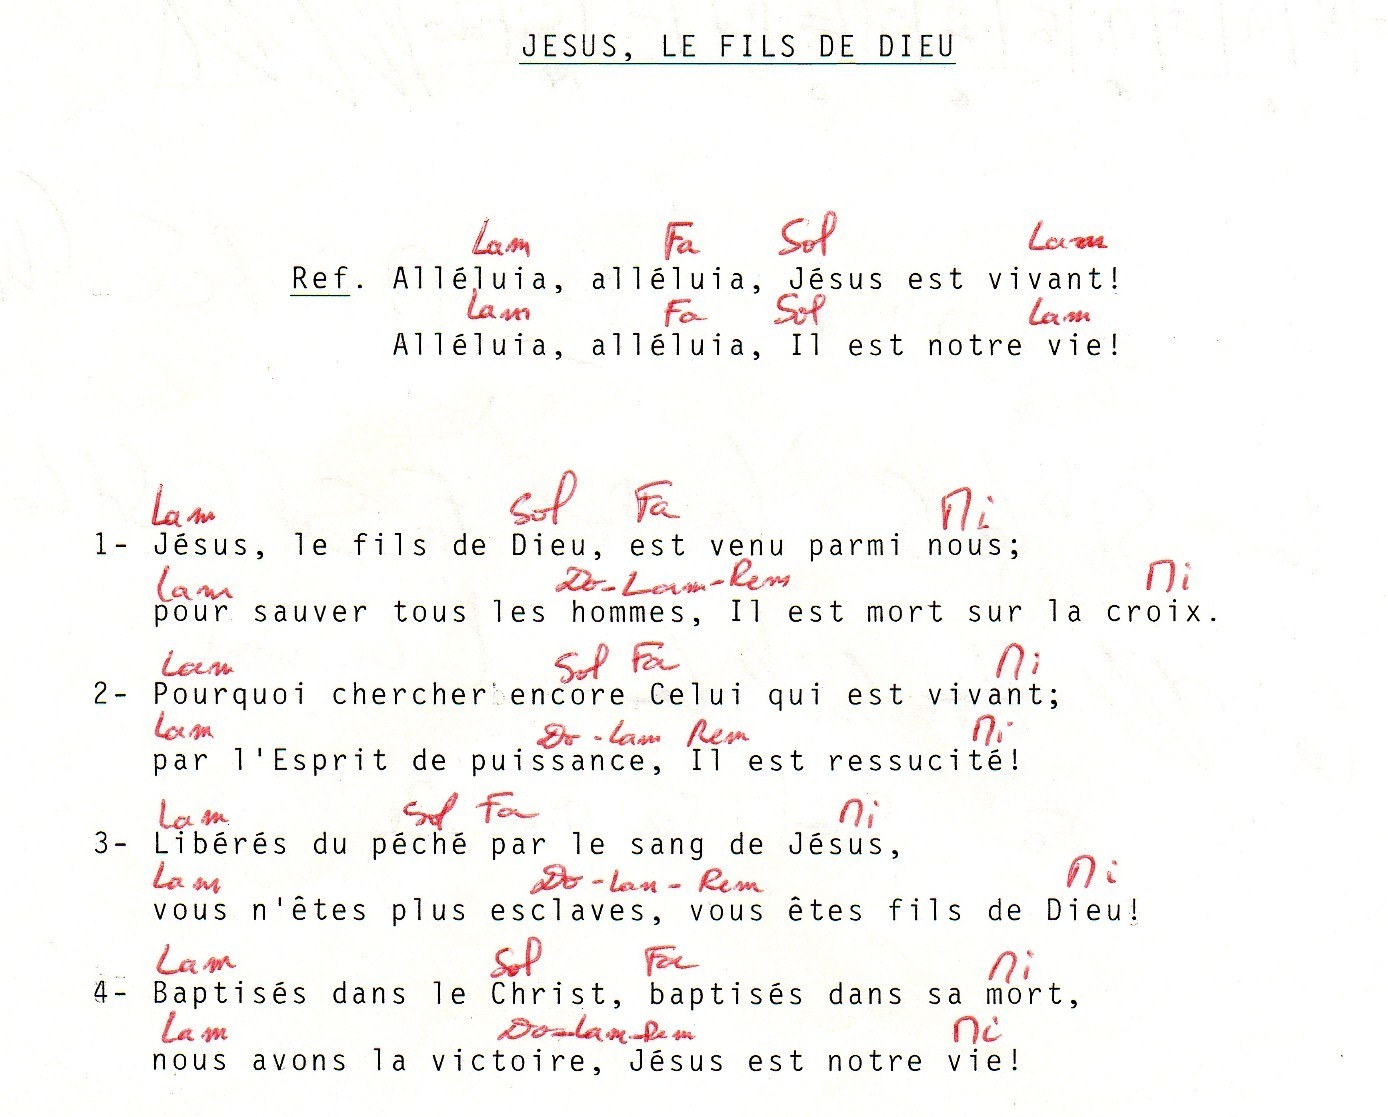 JESUS, LE FILS DE DIEU
Lam Fa Sol Lam
Ref. Alléluia, alléluia, Jésus est vivant!
Lam Fa Sol Lam
Alléluia, alléluia, Il est notre vie!
Lam Sol Fa Mi
1- Jésus, le fils de Dieu, est venu parmi nous;
Lam Do-Lam-Rem Mi
pour sauver tous les hommes, Il est mort sur la croix.
Lam Sol Fa Mi
2- Pourquoi chercher encore Celui qui est vivant;
Lam Do-Lam Rem Mi
par l'Esprit de puissance, Il est ressucité!
Lam Sol Fa Mi
3- Libérés du péché par le sang de Jésus,
Lam Do-Lam-Rem Mi
vous n'êtes plus esclaves, vous êtes fils de Dieu!
Lam Sol Fa Mi
4- Baptisés dans le Christ, baptisés dans sa mort,
Lam Do-Lam-Rem Mi
nous avons la victoire, Jésus est notre vie!